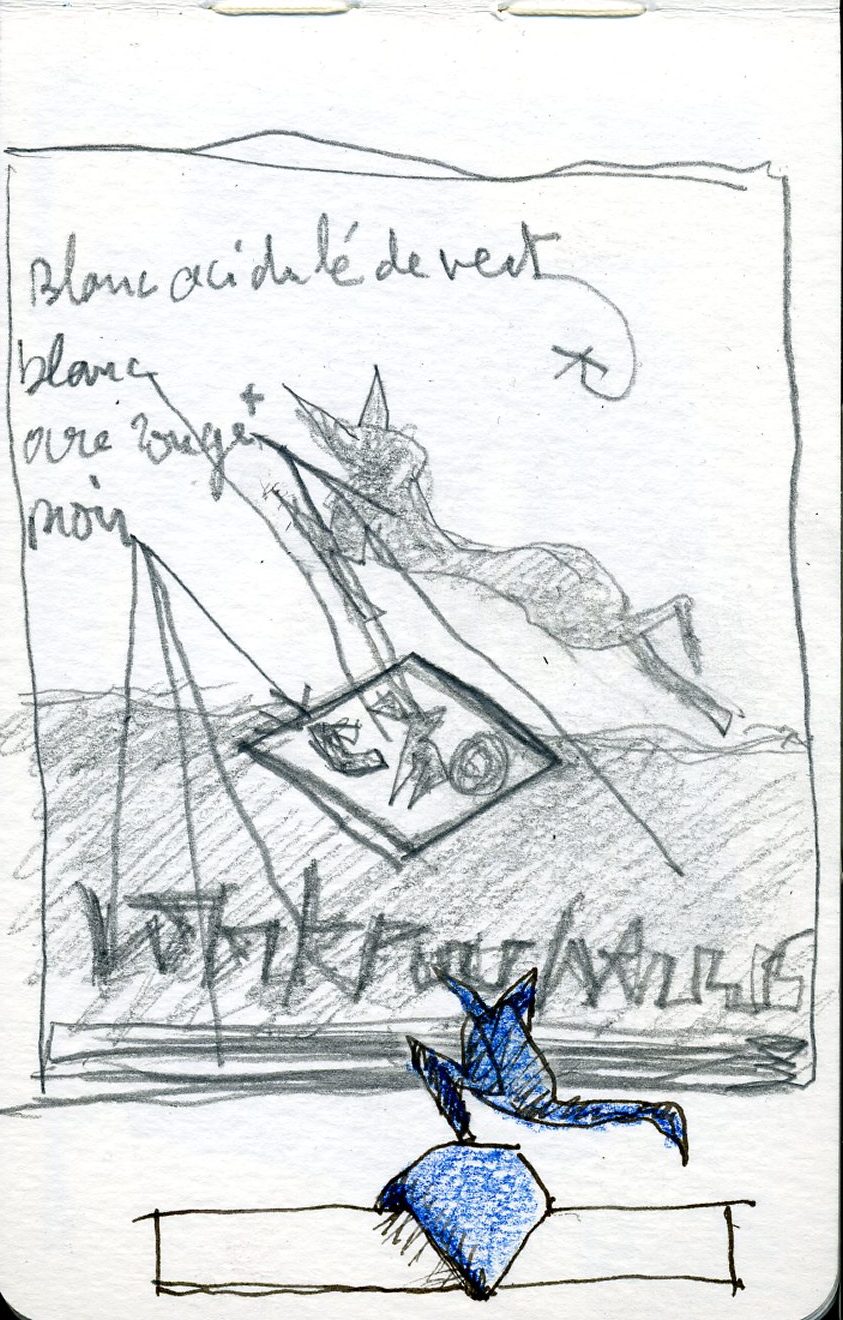 Blanc acidulé de vert
blanc
ocre rouge +
noir